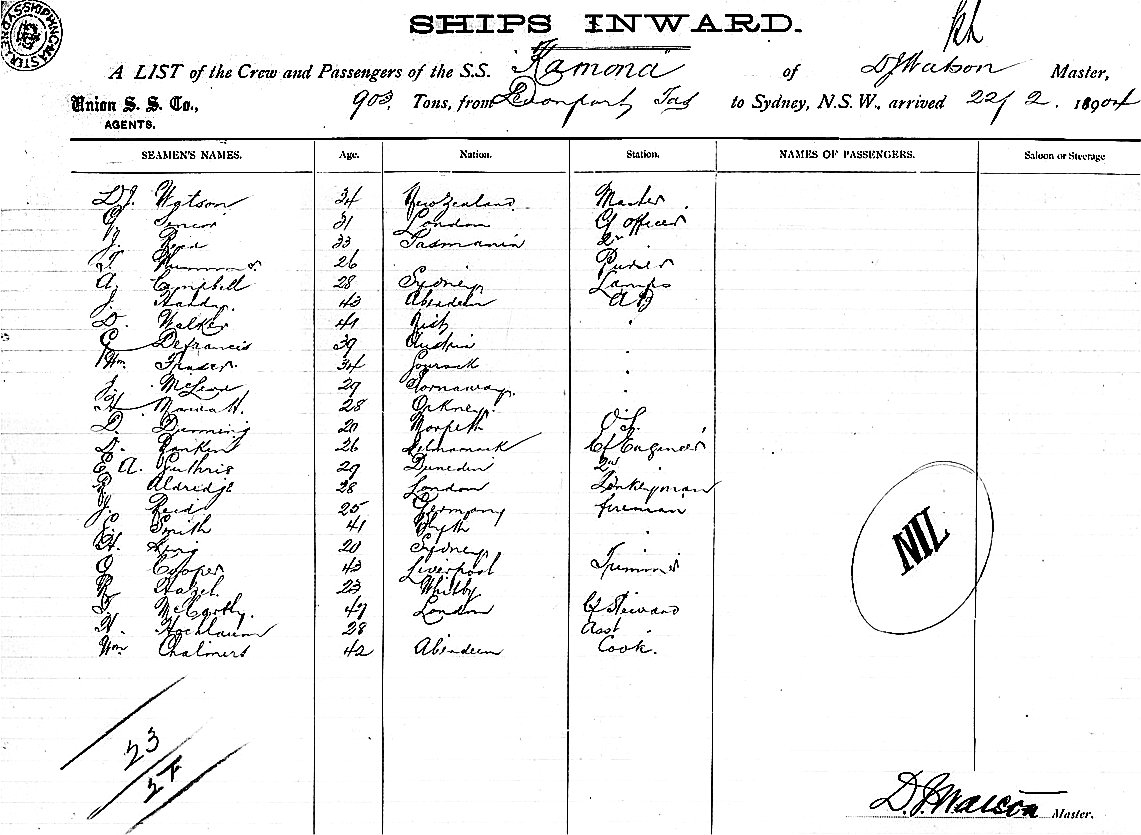 SHIPS INWARD.
A LIST of the Crew and Passengers of the S.S. "Kamona" of D J Watson Master,
Union S. S. Co., 903 Tons, from Devonport Tas to Sydney, N.S.W., arrived 22/2. 18904
AGENTS.
SEAMEN'S NAMES. Age. Nation. Station. NAMES OF PASSENGERS. Saloon or Steerage
D.J. Watson 34 New Zealand Master
31 London Cf officer
J. Reed 33 Tasmania 2nd
26 Purser
A. Campbell 28 Sydney Lamps
J. 43 Aberdeen AB
D. Walker 41
C Defrancis 39 Austria
Wm. Fraser 34 Gourock
J. McLeod 29 Stornaway
H 28 Orkney
D. Denning 20 Morpeth O.S.
D. Rankin 26 Kilmarnock Cf Engineer
E A. Guthrie 29 Dunedin 2nd
Aldridge 28 London Donkeyman
J. Reid 25 Germany fireman
Smith 41
H. 20 Sydney
C Cooper 43 Liverpool Trimmer
R Hazel 23 Whitby
McCarthy. 47 London Cf Steward
H. 28 Asst
Wm Chalmers 42 Aberdeen Cook.
NIL
23
D. J. Watson Master.